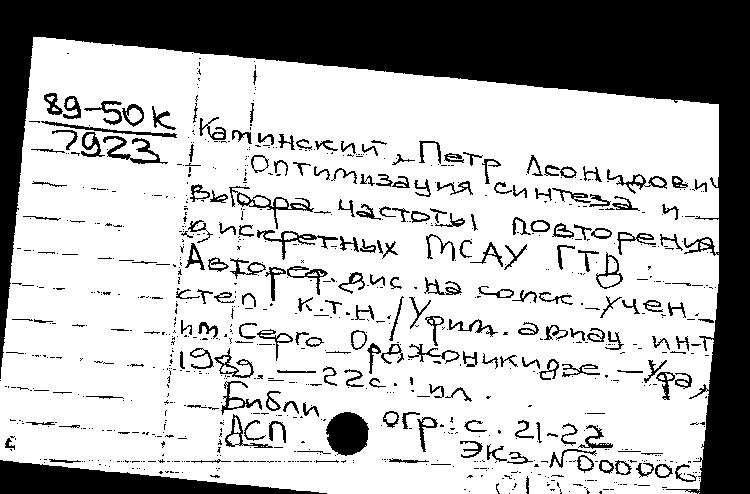 89-50к
7923
Каминский, Петр Леонидович
Оптимизация синтеза и
выбора частоты повторения
дискретных МСАУ ГТД :
Автореф. дис. на соиск. учен.
степ. к.т.н. / Уфим. авиац. ин-т
им. Серго Орджоникидзе. — Уфа,
1989. — 22 с. : ил.
Библиогр.: с. 21-22
ДСП. Экз. N 000006